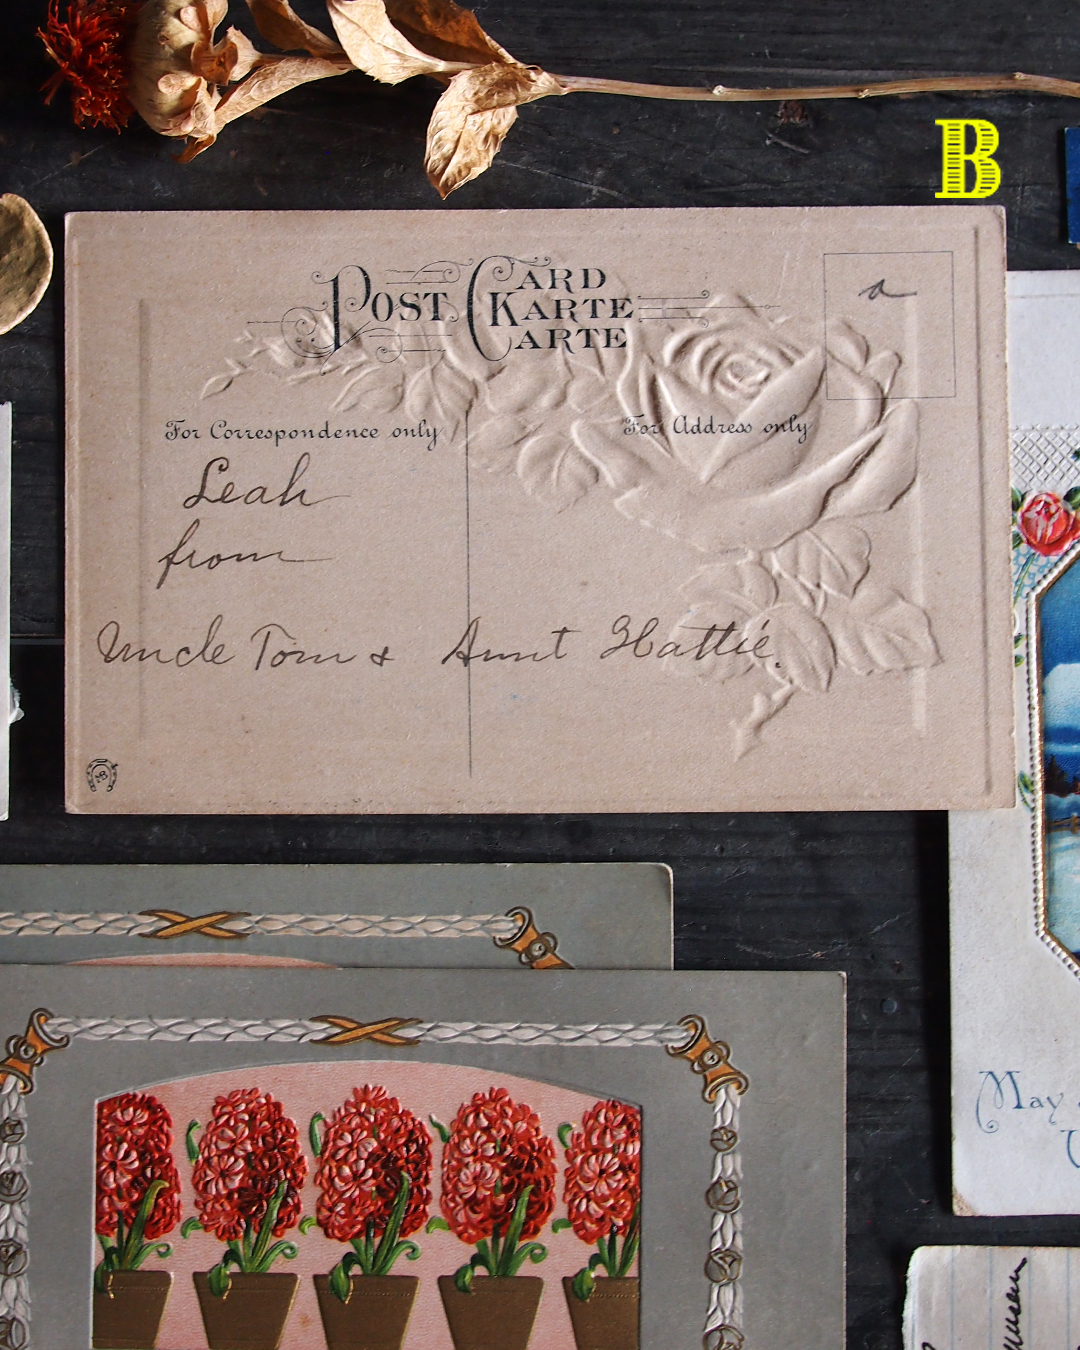 B
POST CARD
KARTE
CARTE
a
For Correspondence only
For Address only
Leah
from
Uncle Tom & Aunt Hattie.
May